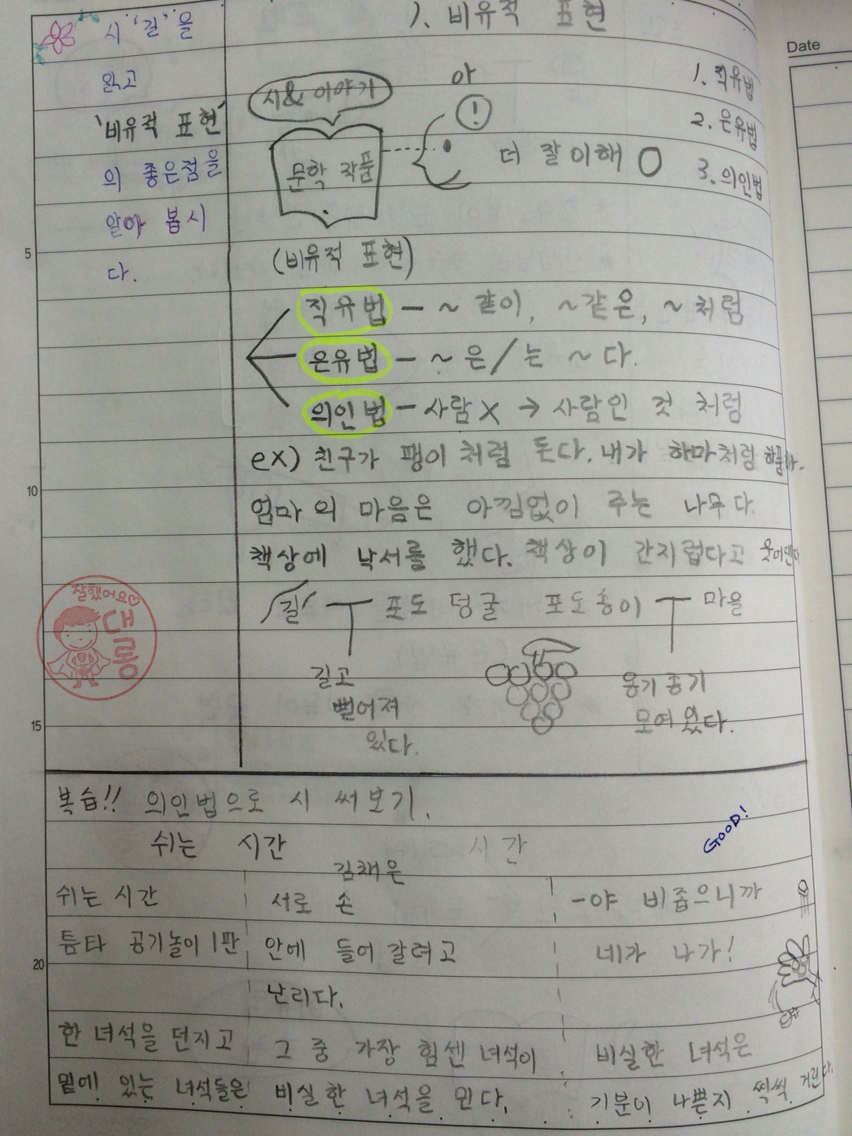 시 '길'을
읽고
'비유적 표현'
의 좋은점을
알아 봅시
다.
1. 비유적 표현
시& 이야기
아
!
문학 작품
더 잘 이해 O
1. 직유법
2. 은유법
3. 의인법
(비유적 표현)
직유법 - ~ 같이, ~같은, ~ 처럼
은유법 - ~ 은/는 ~ 다.
의인법 - 사람 X → 사람인 것 처럼
ex) 친구가 팽이 처럼 돈다. 내가 하마처럼
엄마 의 마음은 아낌없이 주는 나무 다.
책상에 낙서를 했다. 책상이 간지럽다고 웃어댄다
'길' 포도 덩굴 포도송이 마을
길고
뻗어져
있다.
옹기 종기
모여 있다.
잘했어요♡
대롱
5
10
15
20
Date
복습!! 의인법으로 시 써보기.
쉬는 시간
시간
김채은
GOOD!
쉬는 시간
틈타 공기놀이 1판
한 녀석을 던지고
밑에 있는 녀석들은
서로 손
안에 들어 갈려고
난리다.
그 중 가장 힘센 녀석이
비실한 녀석을 민다.
-야 비좁으니까
네가 나가!
비실한 녀석은
기분이 나쁜지 씩씩 거린다.